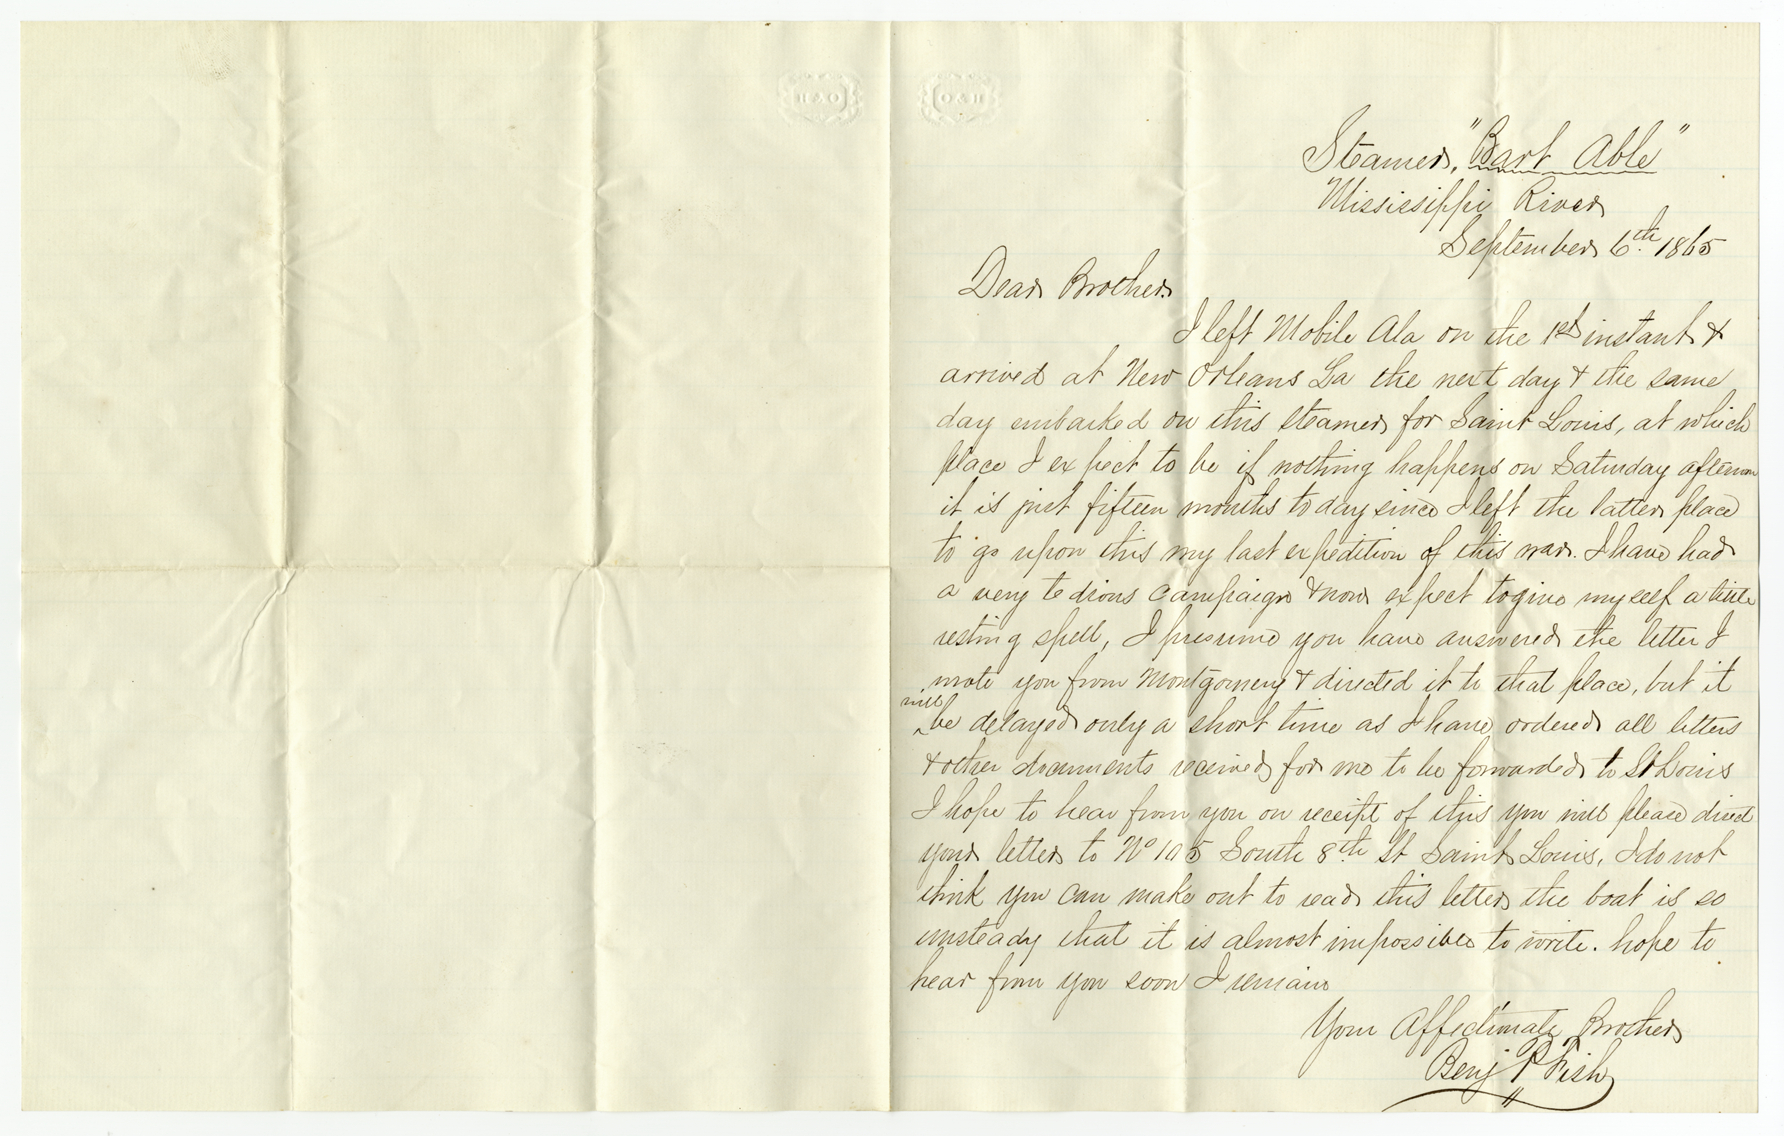 Steamer, "Bart Able"
Mississippi River
September 6th 1865
Dear Brother.
I left Mobile Ala on the 1st instant &
arrived at New Orleans La the next day & the same
day embarked on this steamer for Saint Louis, at which
place I expect to be if nothing happens on Saturday afternoon
it is just fifteen months to day since I left the latter place
to go upon this my last expedition of this war. I have had
a very tedious campaign & now expect to give myself a little
resting spell, I presume you have answered the letter I
wrote you from Montgomery & directed it to that place, but it
will
^ be delayed only a short time as I have ordered all letters
& other documents received for me to be forwarded to St Louis
I hope to hear from you on receipt of this you will please direct
your letter to No 105 South 8th St Saint Louis, I do not
think you can make out to read this letter the boat is so
unsteady that it is almost impossible to write. hope to
hear from you soon I remain
Your Affectionate Brother
Benj P Fish